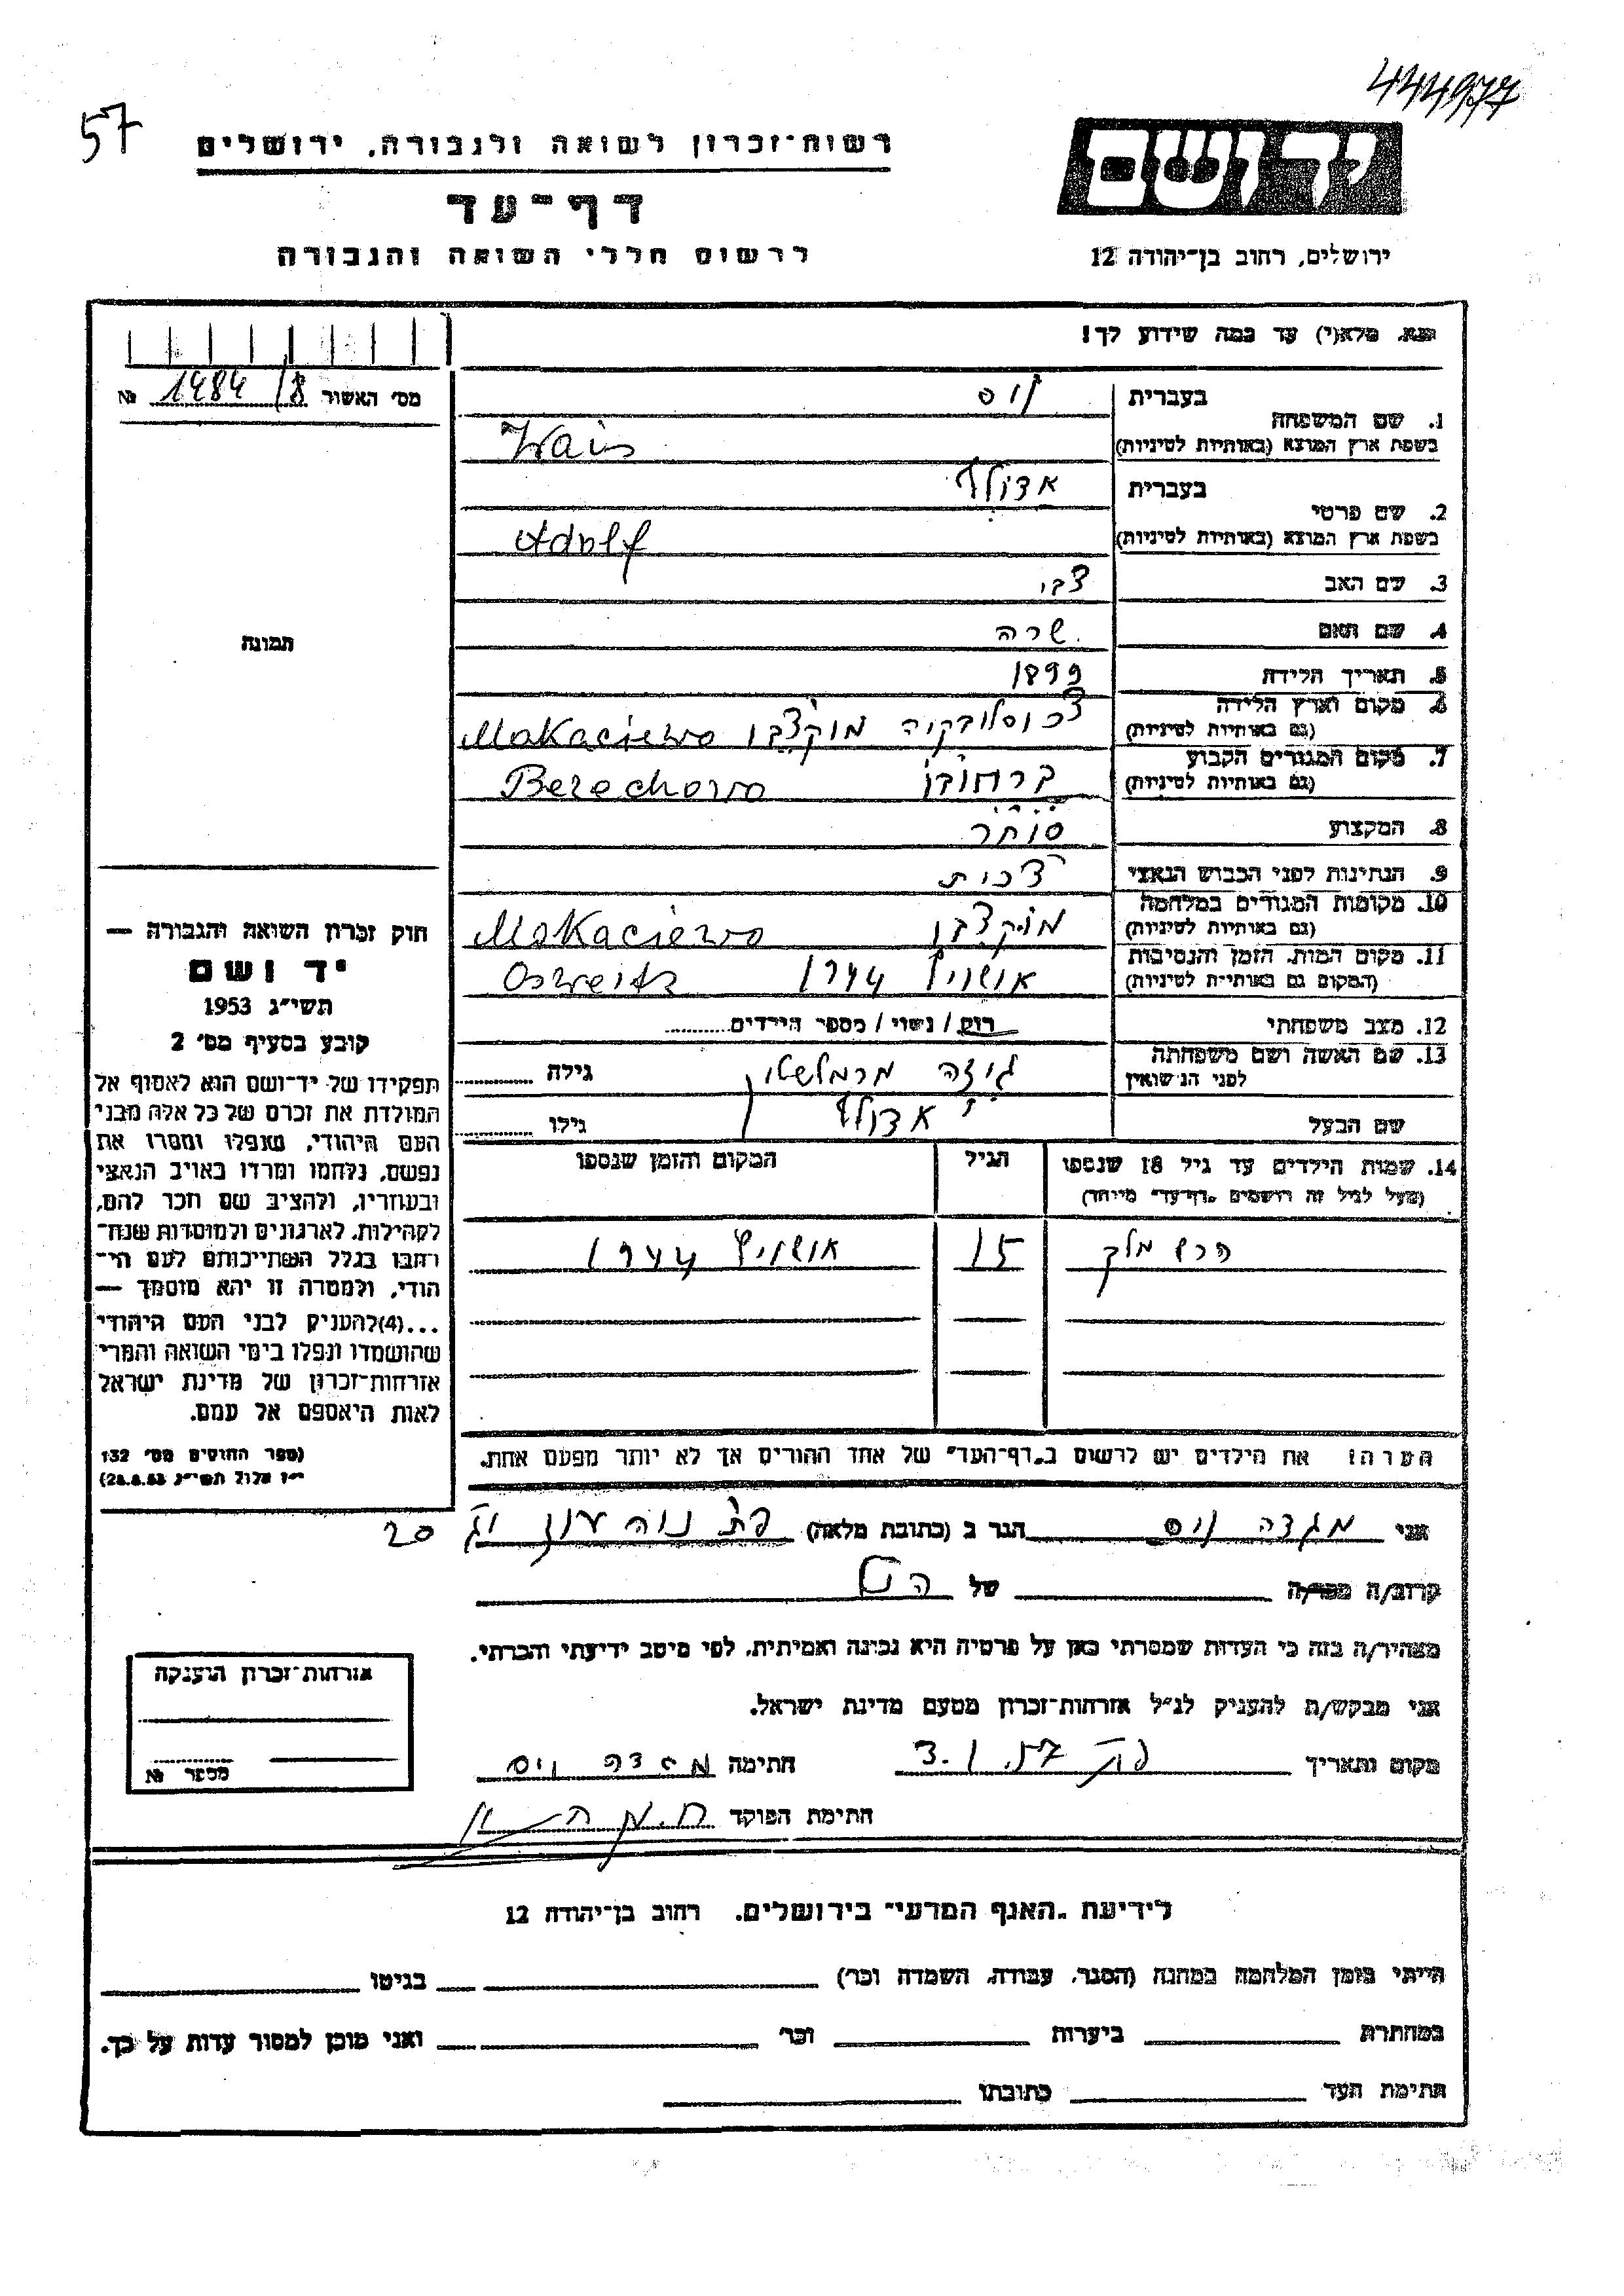 444977
57
רשות־זכרון לשואה ולגבורה, ירושלים
דף־עד
לרשום חללי השואה והגבורה
יד ושם
ירושלים, רחוב בן־יהודה 12
נא. מלא(י) עד כמה שידוע לך!
מס׳ האשור 1484/8 №
1. שם המשפחה
בעברית ויס
בשפת ארץ המוצא (באותיות לטיניות) Wais
2. שם פרטי
בעברית אדולף
בשפת ארץ המוצא (באותיות לטיניות) Adolf
3. שם האב צבי
4. שם האם שרה
5. תאריך הלידה 1899
6. מקום וארץ הלידה (גם באותיות לטיניות) צ'כוסלובקיה מוקצ'בו Makaciewo
7. מקום המגורים הקבוע (גם באותיות לטיניות) Berechowo
8. המקצוע סוחר
9. הנתינות לפני הכבוש הנאצי צ'כית
10. מקומות המגורים במלחמה (גם באותיות לטיניות) מוקצבו Makaciewo
11. מקום המות, הזמן והנסיבות (המקום גם באותיות לטיניות) אושויץ 1944 Osweitz
12. מצב משפחתי רוק / נשוי / מספר הילדים
13. שם האשה ושם משפחתה לפני הנשואין גילה
שם הבעל אדולף גילו
14. שמות הילדים עד גיל 18 שנספו
(מעל לגיל זה רושמים „דף־עד״ מיוחד)
הגיל
המקום והזמן שנספו
הרש מלך 15 אושויץ 1944
הערה: את הילדים יש לרשום ב„דף־העד״ של אחד ההורים אך לא יותר מפעם אחת.
תמונה
חוק זכרון השואה והגבורה —
יד ושם
תשי״ג 1953
קובע בסעיף מס׳ 2
תפקידו של יד־ושם הוא לאסוף אל
המולדת את זכרם של כל אלה מבני
העם היהודי, שנפלו ומסרו את
נפשם, נלחמו ומרדו באויב הנאצי
ובעוזריו, ולהציב שם וזכר להם,
לקהילות, לארגונים ולמוסדות שנח־
רבו בגלל השתייכותם לעם הי־
הודי, ולמטרה זו יהא מוסמך —
...(4)להעניק לבני העם היהודי
שהושמדו ונפלו בימי השואה והמרי
אזרחות־זכרון של מדינת ישראל
לאות היאספם אל עמם.
(ספר החוקים מס׳ 132
י״ז אלול תשי״ג 28.8.53)
אני מגדה ויס הגר ב (כתובת מלאה) 20
קרוב/ה מכר/ה של
מצהיר/ה בזה כי העדות שמסרתי כאן על פרטיה היא נכונה ואמיתית, לפי מיטב ידיעתי והכרתי.
אני מבקש/ת להעניק לנ״ל אזרחות־זכרון מטעם מדינת ישראל.
מקום ותאריך 3.1.57 חתימה מגדה ויס
חתימת הפוקד
אזרחות־זכרון הוענקה
מספר №
לידיעת „האגף המדעי״ בירושלים. רחוב בן־יהודה 12
הייתי בזמן המלחמה במחנה (הסגר, עבודה, השמדה וכו׳) בגיטו
במחתרת ביערות וכו׳ ואני מוכן למסור עדות על כך.
חתימת העד כתובתו